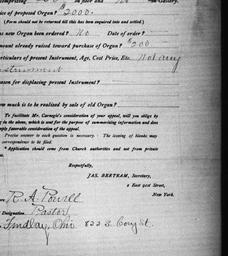 of proposed Organ? $2000.
(Form should not be returned till this has been inquired into and settled.)
new Organ been ordered? No Date of order?
amount already raised toward purchase of Organ? $200
Particulars of present Instrument, Age, Cost Price, Etc. Not any
Instrument
reason for displacing present Instrument?
much is to be realized by sale of old Organ?
To facilitate Mr. Carnegie's consideration of your appeal, will you oblige by
in the above, which is sent for the purpose of summarizing information and does
imply favorable consideration of the appeal.
Precise answer to each question is necessary. The issuing of blanks may
correspondence to be ignored.
* Application should come from Church authorities and not from private
Respectfully,
JAS. BERTRAM, Secretary,
2 East 91st Street,
New York.
R. A. Powell
Designation. Pastor
Findlay, Ohio 822 S. Cory St.